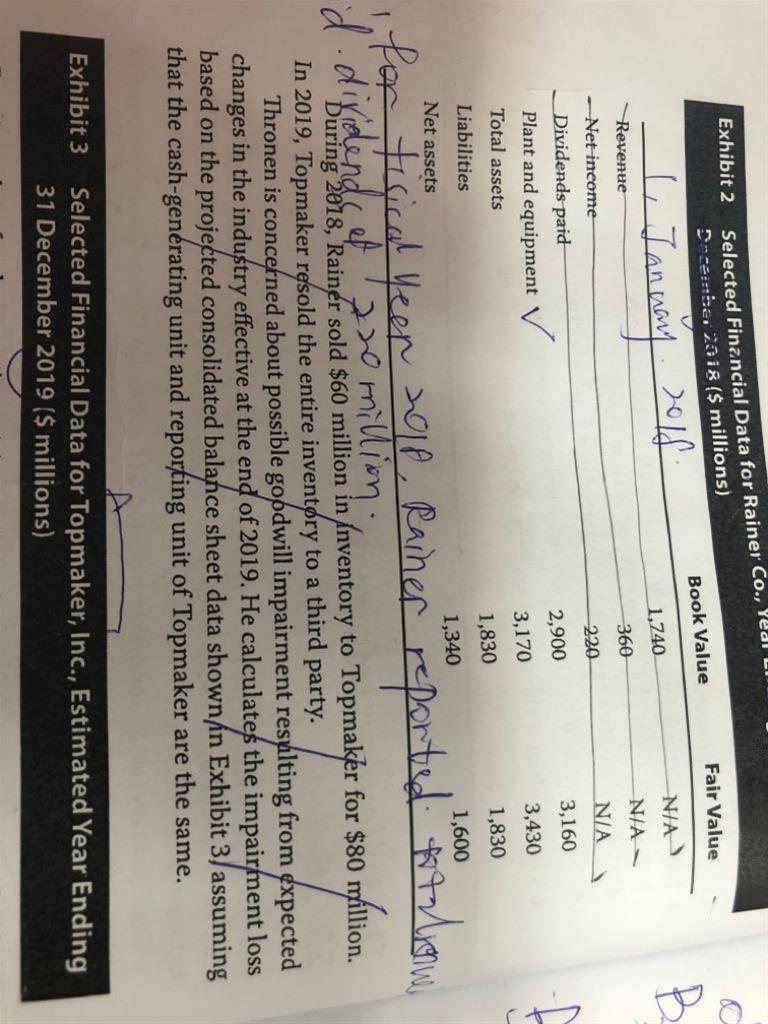 Exhibit 2 Selected Financial Data for Rainer Co., Year
December 2018 ($ millions)
1, January. 2018.
Book Value Fair Value
Revenue 1,740 N/A
Net income 360 N/A
Dividends paid 220 N/A
Plant and equipment 2,900 3,160
Total assets 3,170 3,430
Liabilities 1,830 1,830
Net assets 1,340 1,600
for fisical year 2018, Rainer reported
d. dividends of 220 million.
During 2018, Rainer sold $60 million in inventory to Topmaker for $80 million.
In 2019, Topmaker resold the entire inventory to a third party.
Thronen is concerned about possible goodwill impairment resulting from expected
changes in the industry effective at the end of 2019. He calculates the impairment loss
based on the projected consolidated balance sheet data shown in Exhibit 3, assuming
that the cash-generating unit and reporting unit of Topmaker are the same.
Exhibit 3 Selected Financial Data for Topmaker, Inc., Estimated Year Ending
31 December 2019 ($ millions)
B